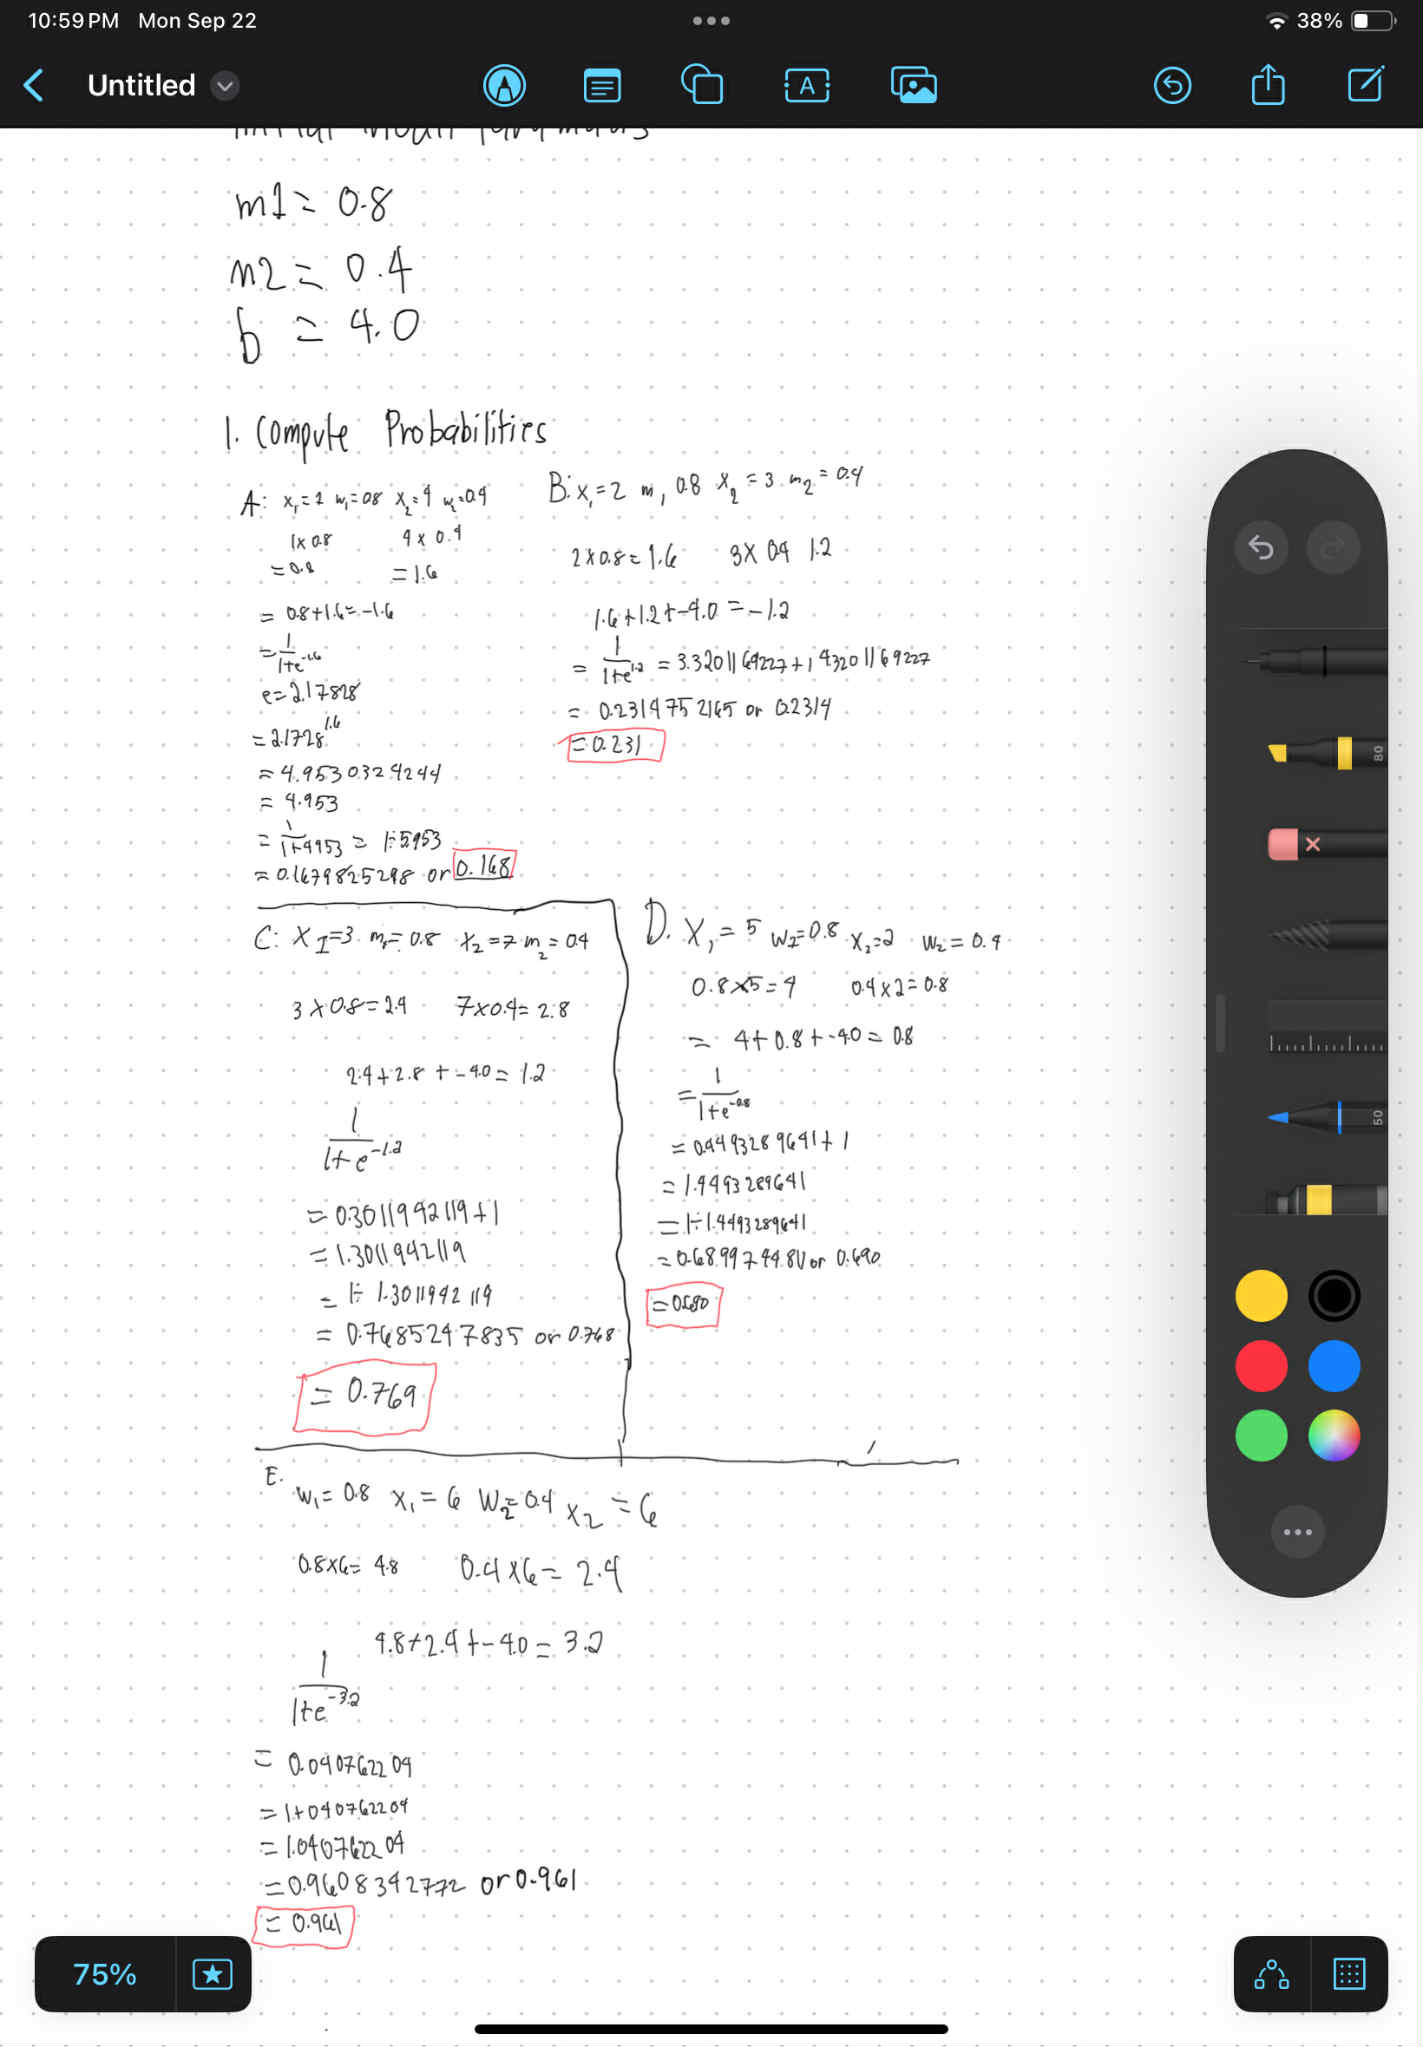 10:59 PM Mon Sep 22
38%
Untitled
A
m1 = 0.8
m2 = 0.4
b = 4.0
1. Compute Probabilities
A: x₁=1 w₁=0.8 x₂=4 w₂=0.4
1x0.8 4 x 0.4
= 0.8 = 1.6
= 0.8+1.6=-1.6
= 1/1+e^-1.6
e=2.17828
= 2.1728^1.6
= 4.9530324244
= 4.953
= 1/1+4953 = 1÷5953
= 0.1679825298 or 0.168
B: x₁=2 m₁ 0.8 x₂=3 m₂=0.4
2x0.8=1.6 3x0.4 1.2
1.6+1.2+-4.0=-1.2
= 1/1+e^1.2 = 3.3201169227+1 4.3201169227
= 0.2314752165 or 0.2314
= 0.231
C: x1=3 m₁=0.8 x₂=7 m₂=0.4
3x0.8=2.4 7x0.4=2.8
2.4+2.8+-4.0=1.2
1/1+e^-1.2
= 0.3011942119+1
= 1.3011942119
= 1÷1.3011942119
= 0.7685247835 or 0.768
= 0.769
D. x₁=5 w1=0.8 x₂=2 w₂=0.4
0.8x5=4 0.4x2=0.8
= 4+0.8+-4.0=0.8
= 1/1+e^-0.8
= 0.4493289641+1
= 1.4493289641
= 1÷1.4493289641
= 0.6899744811 or 0.690
= 0.690
E.
w₁=0.8 x₁=6 w₂=0.4 x₂=6
0.8x6=4.8 0.4x6=2.4
4.8+2.4+-4.0=3.2
1/1+e^-3.2
= 0.040762204
= 1+040762204
= 1.040762204
= 0.9608342772 or 0.961
= 0.961
80
50
75%